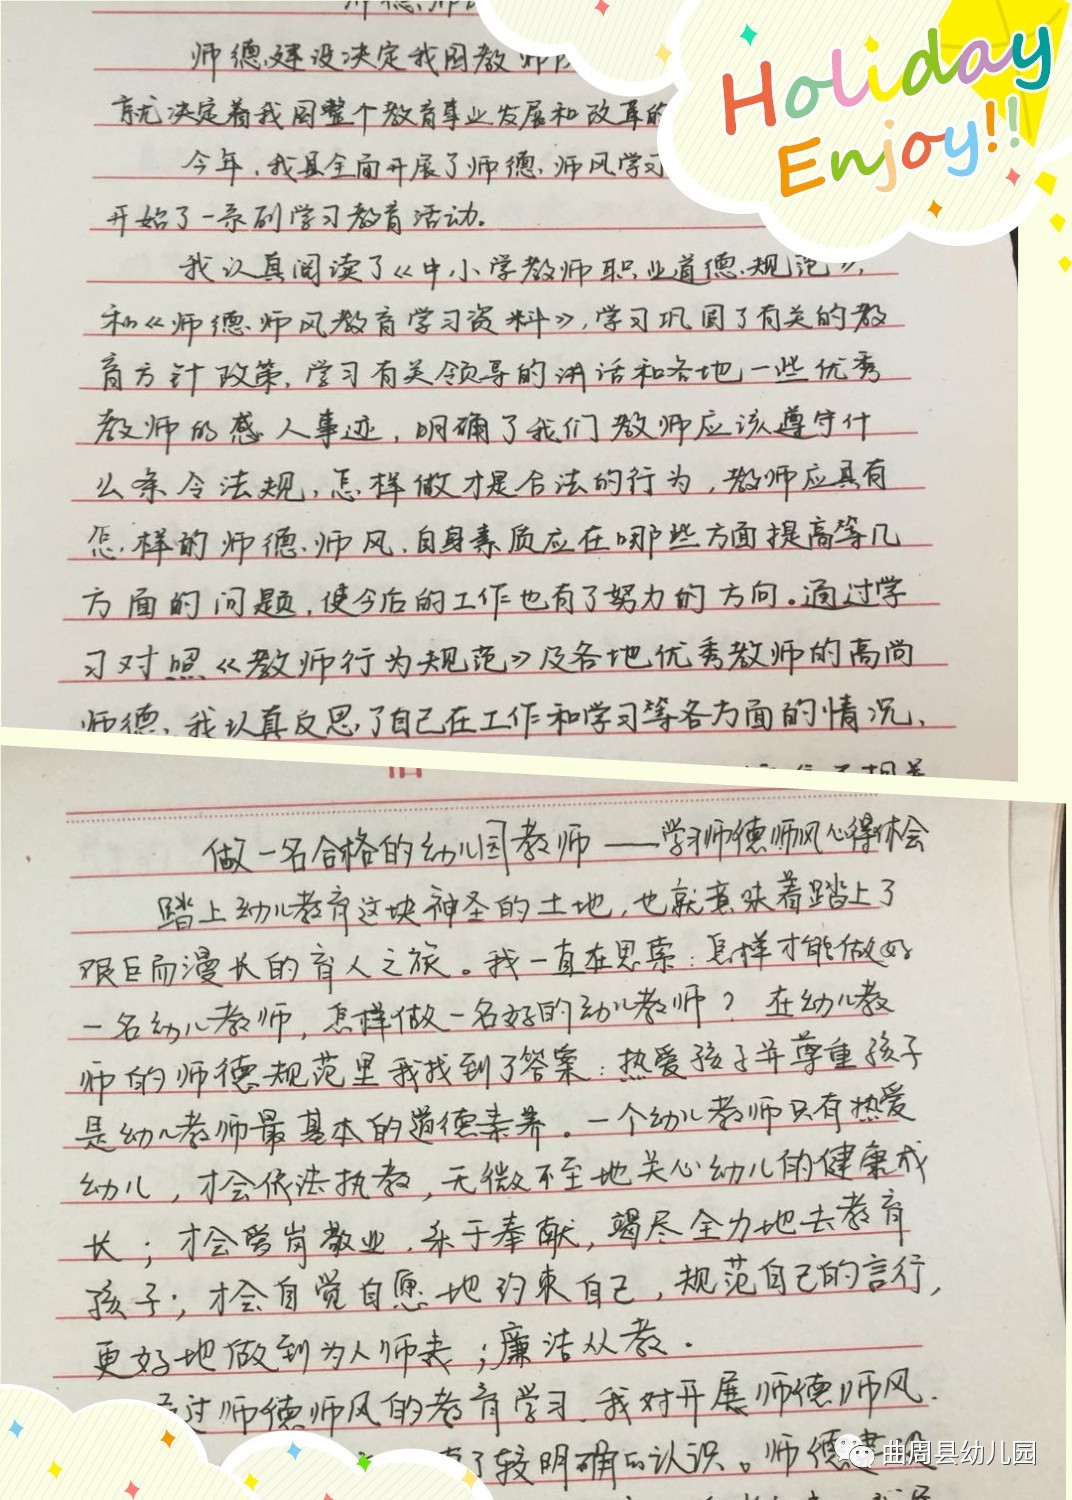 师德、师
师德建设决定我国教师
就决定着我国整个教育事业发展和改革的
今年，我县全面开展了师德、师风学习
开始了一系列学习教育活动。
我认真阅读了《中小学教师职业道德规范》，
和《师德师风教育学习资料》，学习巩固了有关的教
育方针政策，学习有关领导的讲话和各地一些优秀
教师的感人事迹，明确了我们教师应该遵守什
么条令法规，怎样做才是合法的行为，教师应具有
怎样的师德、师风、自身素质应在哪些方面提高等几
方面的问题，使今后的工作也有了努力的方向。通过学
习对照《教师行为规范》及各地优秀教师的高尚
师德，我认真反思了自己在工作和学习等各方面的情况，
Holiday
Enjoy!!
做一名合格的幼儿园教师——学习师德师风心得体会
踏上幼儿教育这块神圣的土地，也就意味着踏上了
艰巨而漫长的育人之旅。我一直在思索：怎样才能做好
一名幼儿教师，怎样做一名好的幼儿教师？在幼儿教
师的师德规范里我找到了答案：热爱孩子并尊重孩子
是幼儿教师最基本的道德素养。一个幼儿教师只有热爱
幼儿，才会依法执教，无微不至地关心幼儿的健康成
长；才会爱岗敬业、乐于奉献，竭尽全力地去教育
孩子；才会自觉自愿地约束自己，规范自己的言行，
更好地做到为人师表；廉洁从教。
过师德师风的教育学习，我对开展师德师风
了较明确的认识。师德建设
曲周县幼儿园